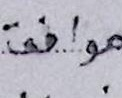 موافقة